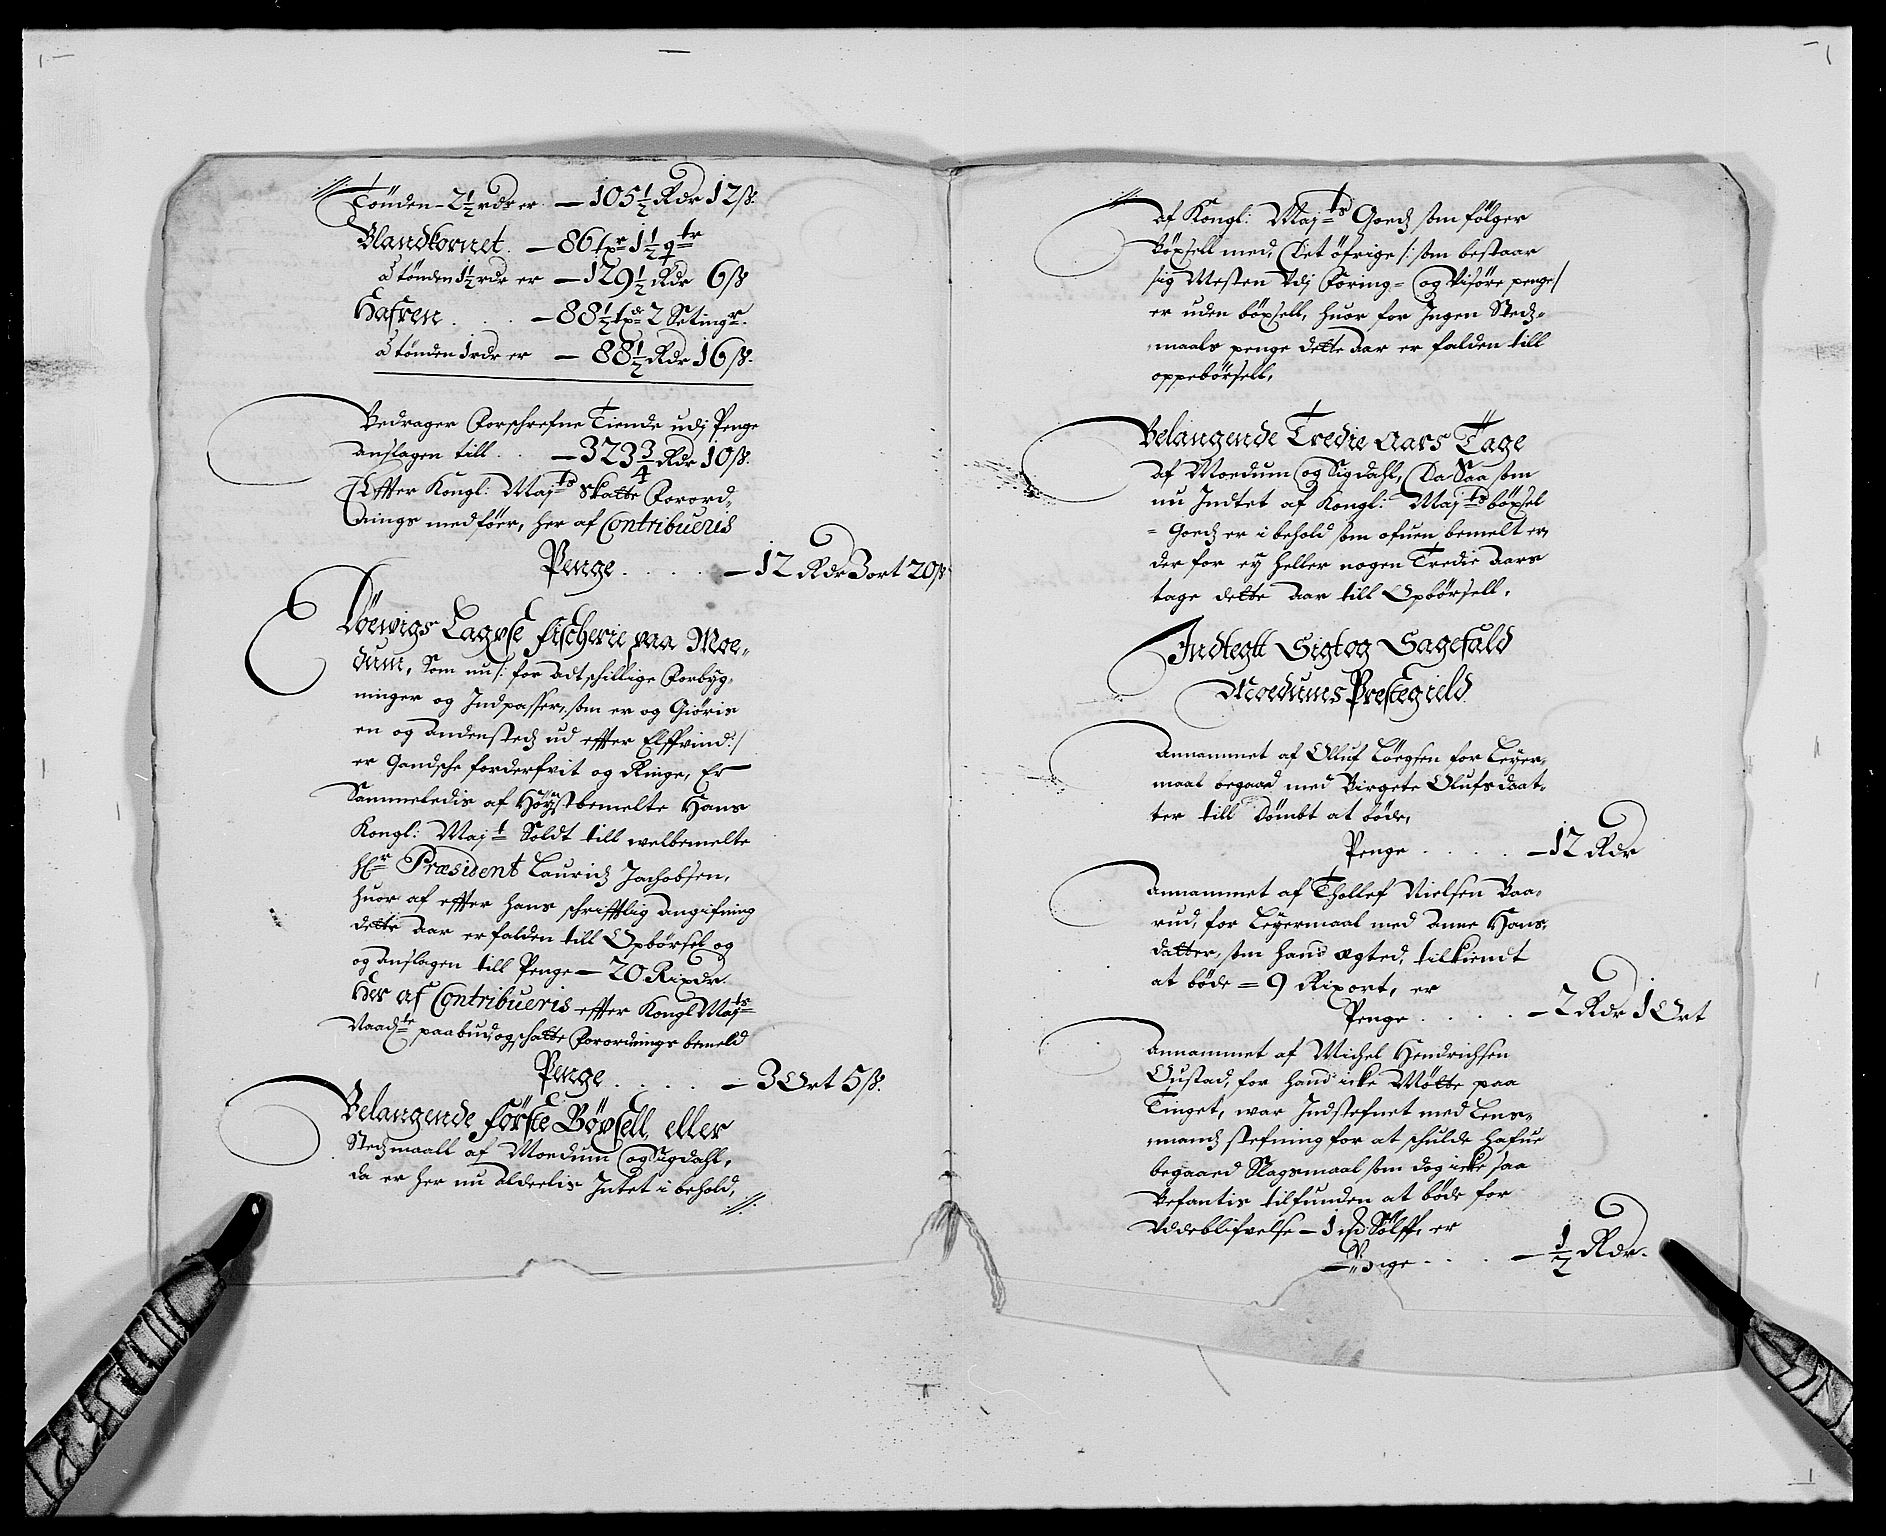 Tönden - 2½ rdr er — 105½ Rdr 12 ß.
Blandkornet. — 86 txr 1½ qtr
a tönden 1½ rdr er — 129½ Rdr 6 ß
Hafren . . . — 88½ txr 2 Setingr.
a tönden 1 rdr er — 88½ Rdr 16 ß.
Bedrager Forschrefne Tiende udj Penge
Anslagen till . . — 323¾ Rdr 10 ß.
Effter Kongl: Majts Skatte Forord,
nings medföer, her af Contribueris
Penge . . . . — 12 Rdr 3 ort 20 ß
Döewigs Laqxse fischerie paa Moe,,
dum, Som nu /: for adtschillige Forbyg,
ninger og Indpasser, som er og Giöris
en og andensteds ud effter Elffvind :/
er Gandsche forderfvit og Ringe, Er
Sammeledis af Höystbemelte Hans
Kongl: Majt Soldt till welbemelte
Hr Præsident Lauridz Jachobsen,
huor af effter hans schrifftlig angifning
dette Aar er falden till Opbörsel og
og Anslagen till Penge — 20 Rixdr.
Her af Contribueris effter Kongl Majts
Naadte paabud og schatte Forordnings bemeld
Penge . . . . — 3 Ort 5 ß.
Belangende förste Böxsell, eller
Stedzmaall af Moedum og Sigdahl,
da er her nu aldeelis Intet i behold,
af Kongl: Majts Goedz som fölger
Böxsell med, Det öfrige /: som bestaar
sig Mesten Udj Foring= og Visöre penge /
er uden böxsell, huor for Ingen Stedz=
maals penge dette Aar er falden till
oppebörsell,
Belangende Tredie Aars Tage
Af Moedum og Sigdahl, Da Saa som
nu Indtet af Kongl: Majts böxsel
= Goedz er i behold som ofuen bemelt er,
der for ey heller nogen Tredie Aars
tage dette Aar till Opbörsell,
Indtegtt Sigt og Sagefald
Moedums Prestegield
Annammet af Oluf Löegsen for Leyer=
maal begaaed med Birgete Olufsdaat=
ter till Dömbt at böde,
Penge . . . . — 12 Rdr
Annammet af Thollef Nielsen Baa=
rud, for Leyermaal med Anne Hans,
datter, som hand ægted, tilkiendt
at böde = 9 Rixort, er
Penge . . . . — 2 Rdr 1 Ort
Annammet af Michel Hendrichsen
Oustad, for hand icke Mötte paa
Tinget, war Indstefnet med Lens=
mandz stefning for at schulde hafue
begaaed Slagsmaal som dog icke saa
Befantis tilfunden at böde for
Uddeblifvelse — 1 Sölff, er
Penge . . . . — ½ Rdr.